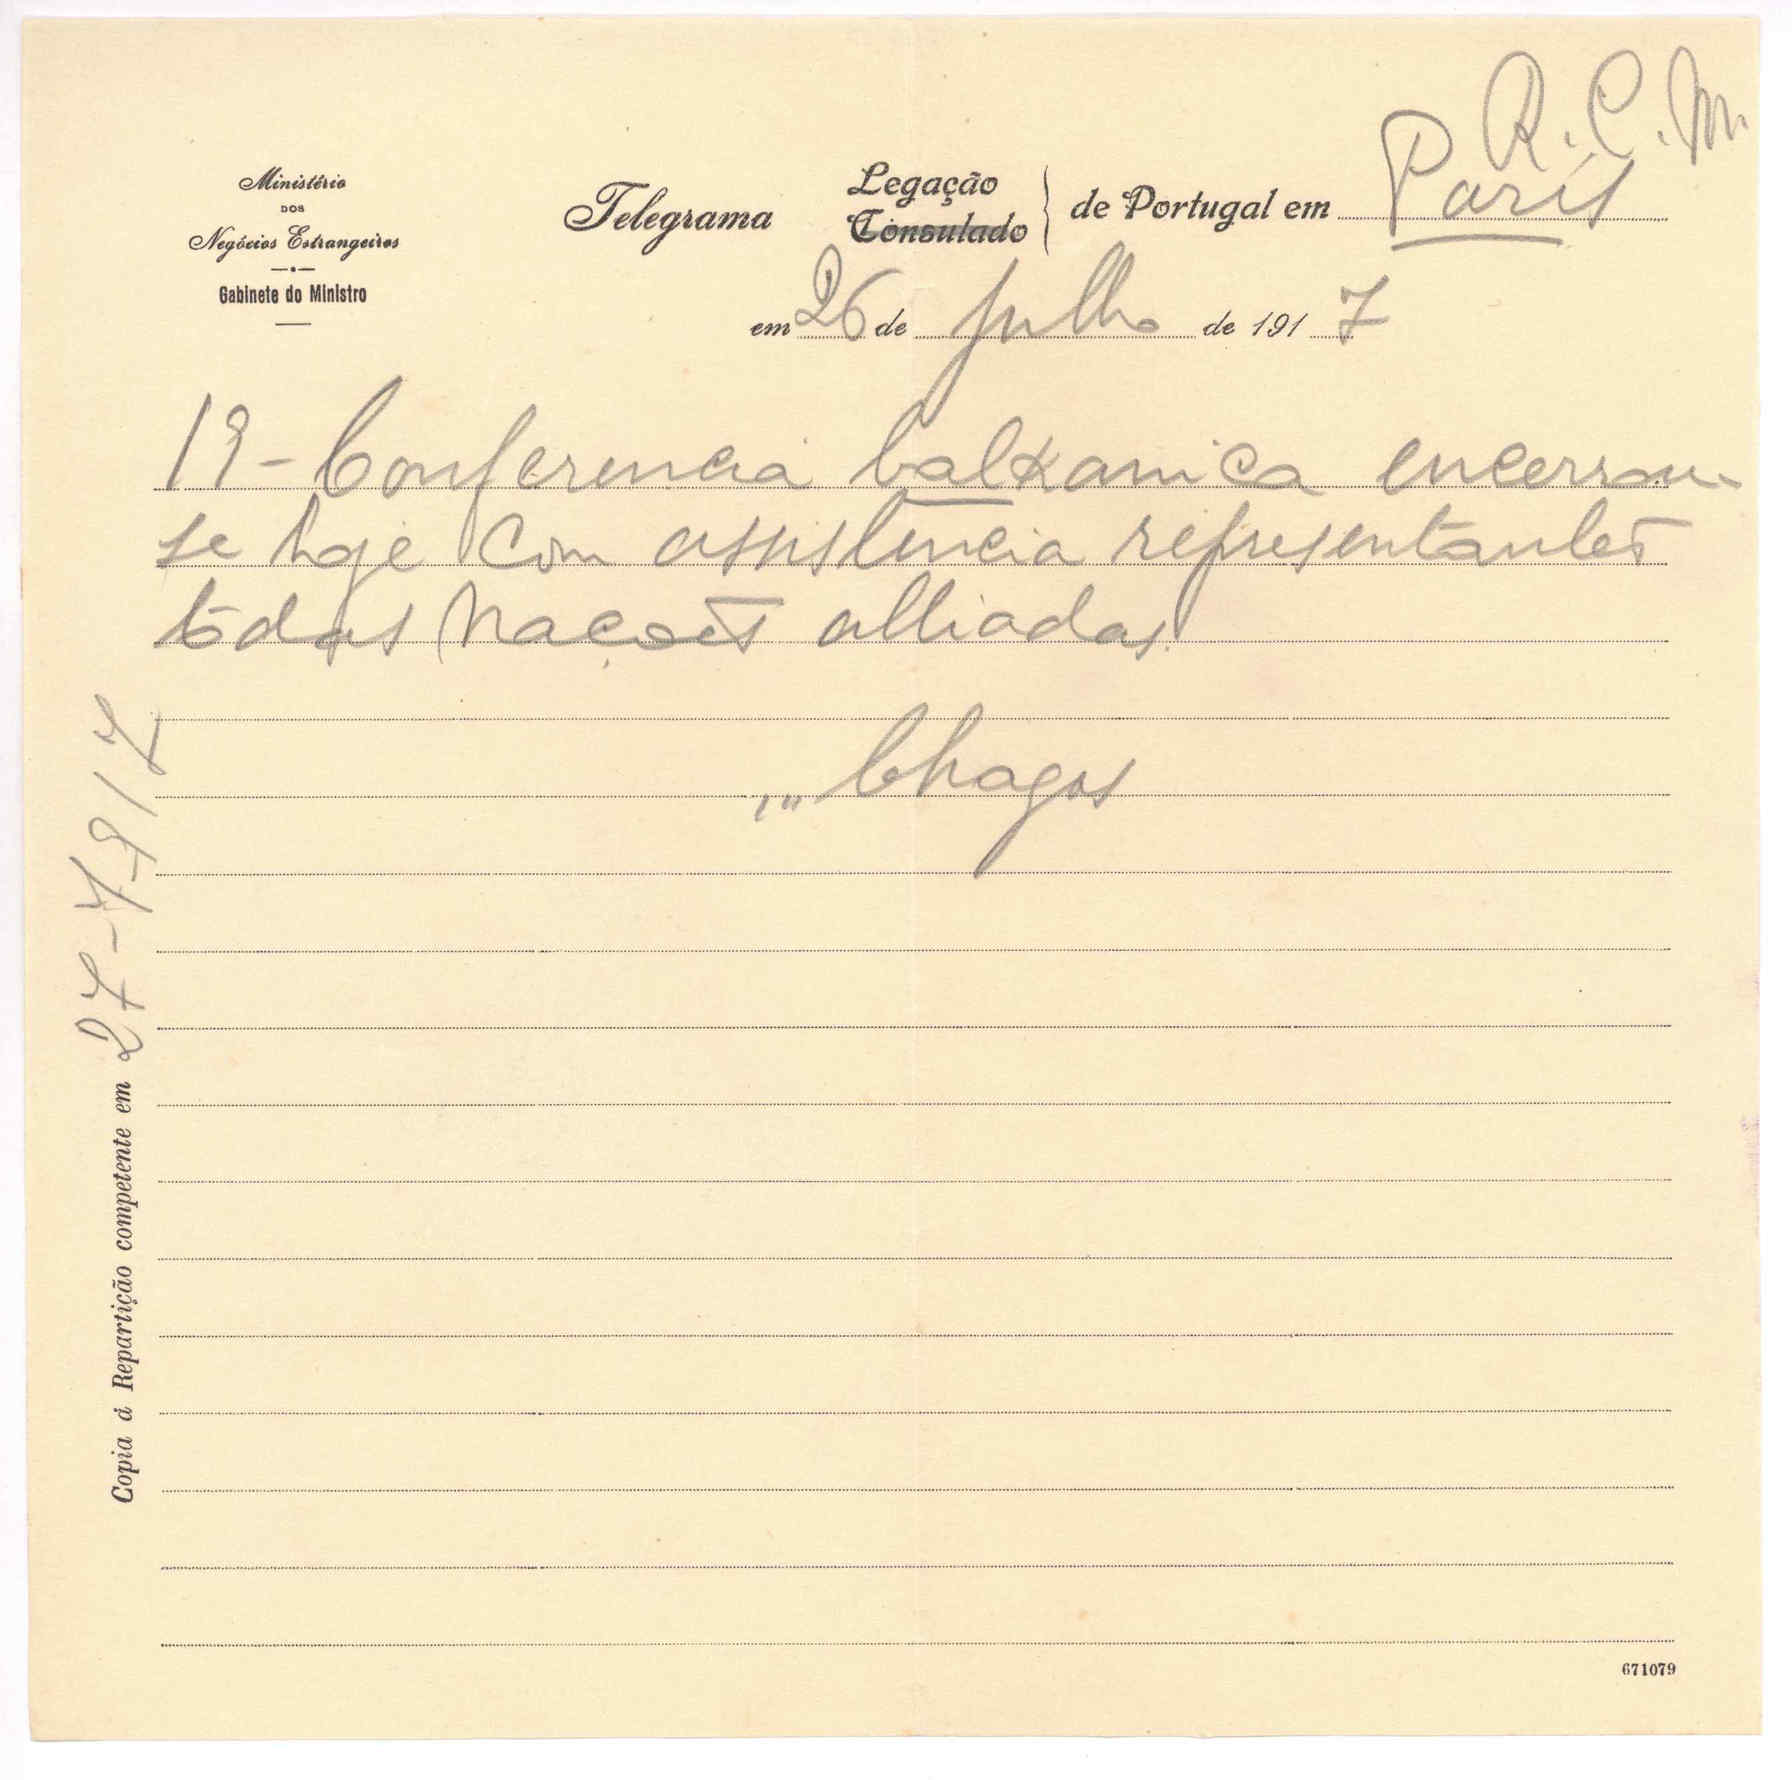 R. C. M.
Ministério
DOS
Negócios Estrangeiros
Gabinete do Ministro
Telegrama
Legação
Consulado
de Portugal em Paris
em 26 de julho de 1917
19 - Conferencia balkanica encerrou-
se hoje com assistencia representantes
todas nações alliadas.
Chagas
Copia á Repartição competente em 27-7-917
671079